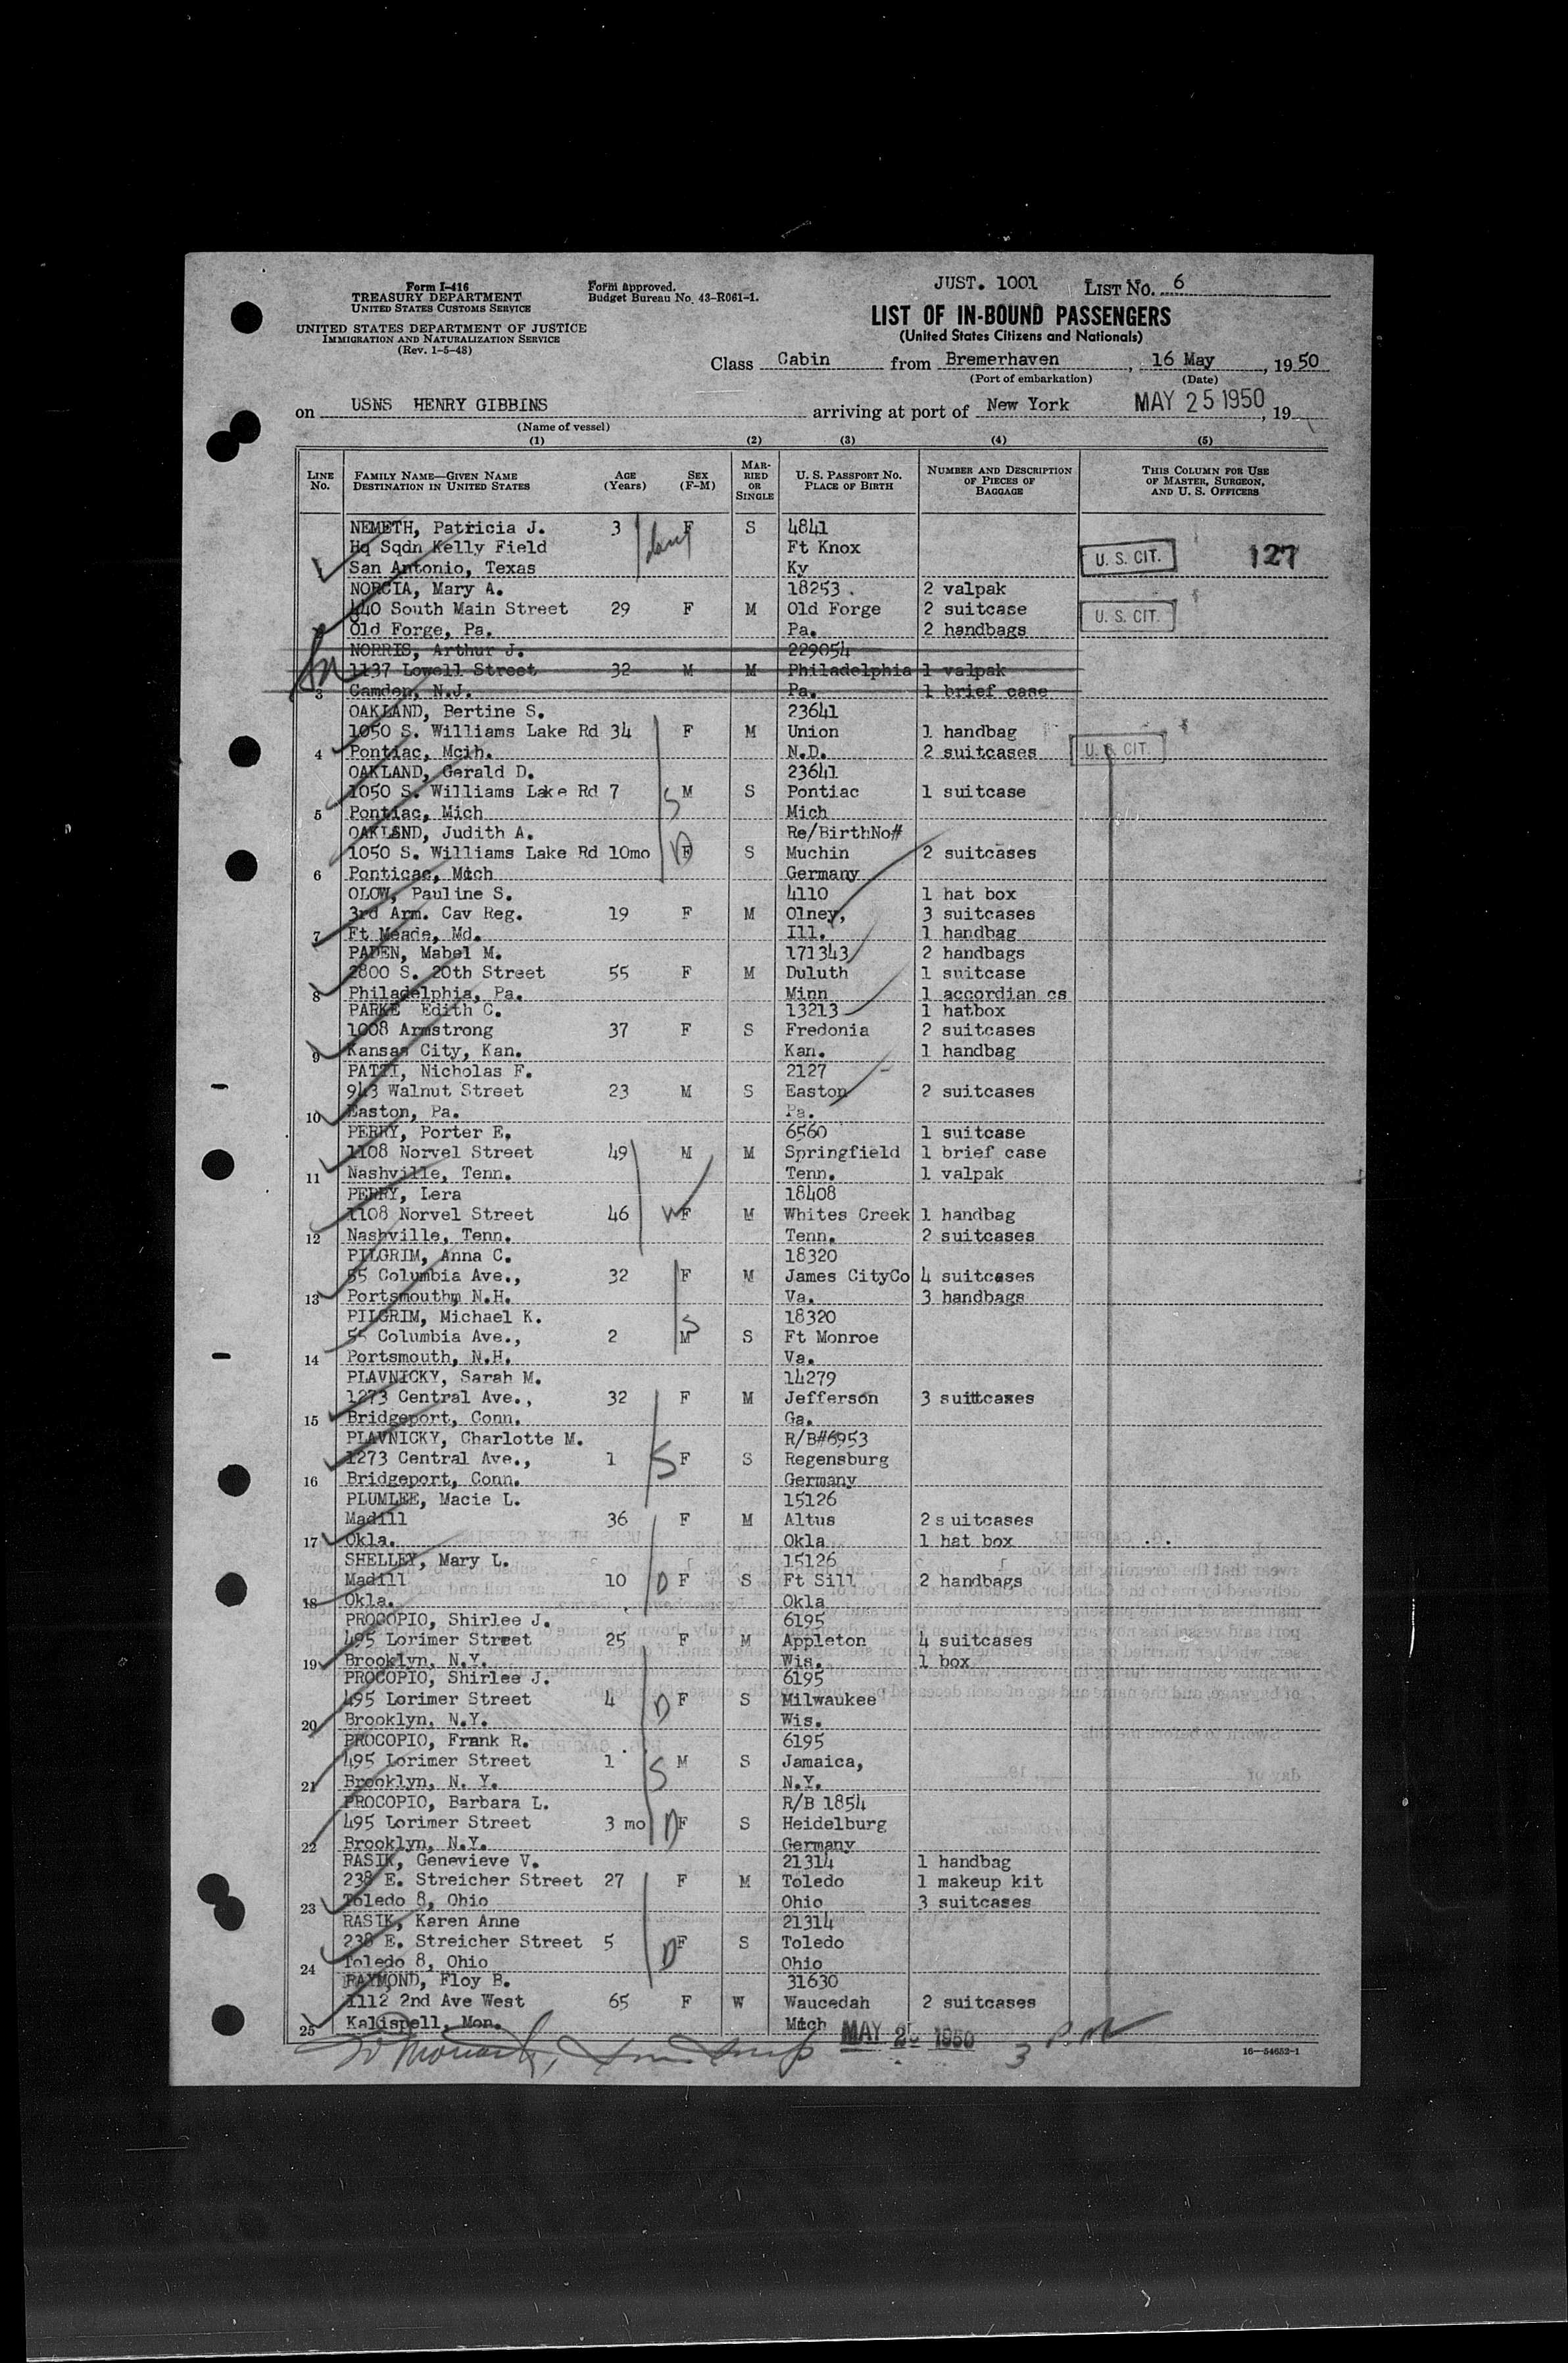 Form I-416
TREASURY DEPARTMENT
UNITED STATES CUSTOMS SERVICE
UNITED STATES DEPARTMENT OF JUSTICE
IMMIGRATION AND NATURALIZATION SERVICE
(Rev. 1-5-48)
Form Approved.
Budget Bureau No. 43-R061-1.
JUST. 1001 LIST NO. 6
LIST OF IN-BOUND PASSENGERS
(United States Citizens and Nationals)
Class Cabin from Bremerhaven, 16 May, 1950
(Port of embarkation) (Date)
on USNS HENRY GIBBINS arriving at port of New York MAY 25 1950, 19
(Name of vessel)
(1) (2) (3) (4) (5)
LINE NO. FAMILY NAME—GIVEN NAME DESTINATION IN UNITED STATES AGE (Years) SEX (F-M) MARRIED OR SINGLE U. S. PASSPORT NO. PLACE OF BIRTH NUMBER AND DESCRIPTION OF PIECES OF BAGGAGE THIS COLUMN FOR USE OF MASTER, SURGEON, AND U. S. OFFICERS
NEMETH, Patricia J. 3 F S 4841
Hq Sqdn Kelly Field Ft Knox
San Antonio, Texas Ky U. S. CIT. 127
NORCIA, Mary A. 18253 . 2 valpak
440 South Main Street 29 F M Old Forge 2 suitcase U. S. CIT.
Old Forge, Pa. Pa. 2 handbags
NORRIS, Arthur J. 229054
1137 Lowell Street 32 M M Philadelphia 1 valpak
3 Camden, N.J. Pa. 1 brief case
OAKLAND, Bertine S. 23641
1050 S. Williams Lake Rd 34 F M Union 1 handbag
4 Pontiac, Mcih. N.D. 2 suitcases U. S. CIT.
OAKLAND, Gerald D. 23641
1050 S. Williams Lake Rd 7 S M S Pontiac 1 suitcase
5 Pontiac, Mich Mich
OAKLSND, Judith A. Re/BirthNo#
1050 S. Williams Lake Rd 10mo D F S Muchin 2 suitcases
6 Ponticac, Mich Germany
OLOW, Pauline S. 4110 1 hat box
3rd Arm. Cav Reg. 19 F M Olney, 3 suitcases
7 Ft Meade, Md. Ill. 1 handbag
PADEN, Mabel M. 171343 2 handbags
2800 S. 20th Street 55 F M Duluth 1 suitcase
8 Philadelphia, Pa. Minn 1 accordian cs
PARKE Edith C. 13213 1 hatbox
1008 Armstrong 37 F S Fredonia 2 suitcases
9 Kansas City, Kan. Kan. 1 handbag
PATTI, Nicholas F. 2127
943 Walnut Street 23 M S Easton 2 suitcases
10 Easton, Pa. Pa.
PERRY, Porter E. 6560 1 suitcase
1108 Norvel Street 49 M M Springfield 1 brief case
11 Nashville, Tenn. Tenn. 1 valpak
PERRY, Lera 18408
1108 Norvel Street 46 W F M Whites Creek 1 handbag
12 Nashville, Tenn. Tenn. 2 suitcases
PILGRIM, Anna C. 18320
55 Columbia Ave., 32 F M James CityCo 4 suitcases
13 Portsmouthm N.H. Va. 3 handbags
PILGRIM, Michael K. 18320
55 Columbia Ave., 2 S M S Ft Monroe
14 Portsmouth, N.H. Va.
PLAVNICKY, Sarah M. 14279
1273 Central Ave., 32 F M Jefferson 3 suitcases
15 Bridgeport, Conn. Ga.
PLAVNICKY, Charlotte M. R/B#6953
1273 Central Ave., 1 S F S Regensburg
16 Bridgeport, Conn. Germany
PLUMLEE, Macie L. 15126
Madill 36 F M Altus 2 suitcases
17 Okla. Okla 1 hat box
SHELLEY, Mary L. 15126
Madill 10 D F S Ft Sill 2 handbags
18 Okla. Okla
PROCOPIO, Shirlee J. 6195
495 Lorimer Street 25 F M Appleton 4 suitcases
19 Brooklyn, N.Y. Wis. 1 box
PROCOPIO, Shirlee J. 6195
495 Lorimer Street 4 D F S Milwaukee
20 Brooklyn, N.Y. Wis.
PROCOPIO, Frank R. 6195
495 Lorimer Street 1 S M S Jamaica,
21 Brooklyn, N. Y. N.Y.
PROCOPIO, Barbara L. R/B 1854
495 Lorimer Street 3 mo D F S Heidelburg
22 Brooklyn, N.Y. Germany
RASIK, Genevieve V. 21314 1 handbag
238 E. Streicher Street 27 F M Toledo 1 makeup kit
23 Toledo 8, Ohio Ohio 3 suitcases
RASIK, Karen Anne 21314
238 E. Streicher Street 5 D F S Toledo
24 Toledo 8, Ohio Ohio
RAYMOND, Floy B. 31630
1112 2nd Ave West 65 F W Waucedah 2 suitcases
25 Kalispell, Mon. Mich
MAY 25 1950 3
16—54652-1